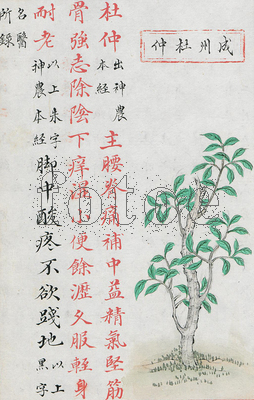 成州杜仲
杜仲出神農本經主腰脊痛補中益精氣堅筋
骨強志除陰下痒濕小便餘瀝久服輕身
耐老以上朱字神農本經脚中酸疼不欲踐地以上黑字
名醫所録
fotoe